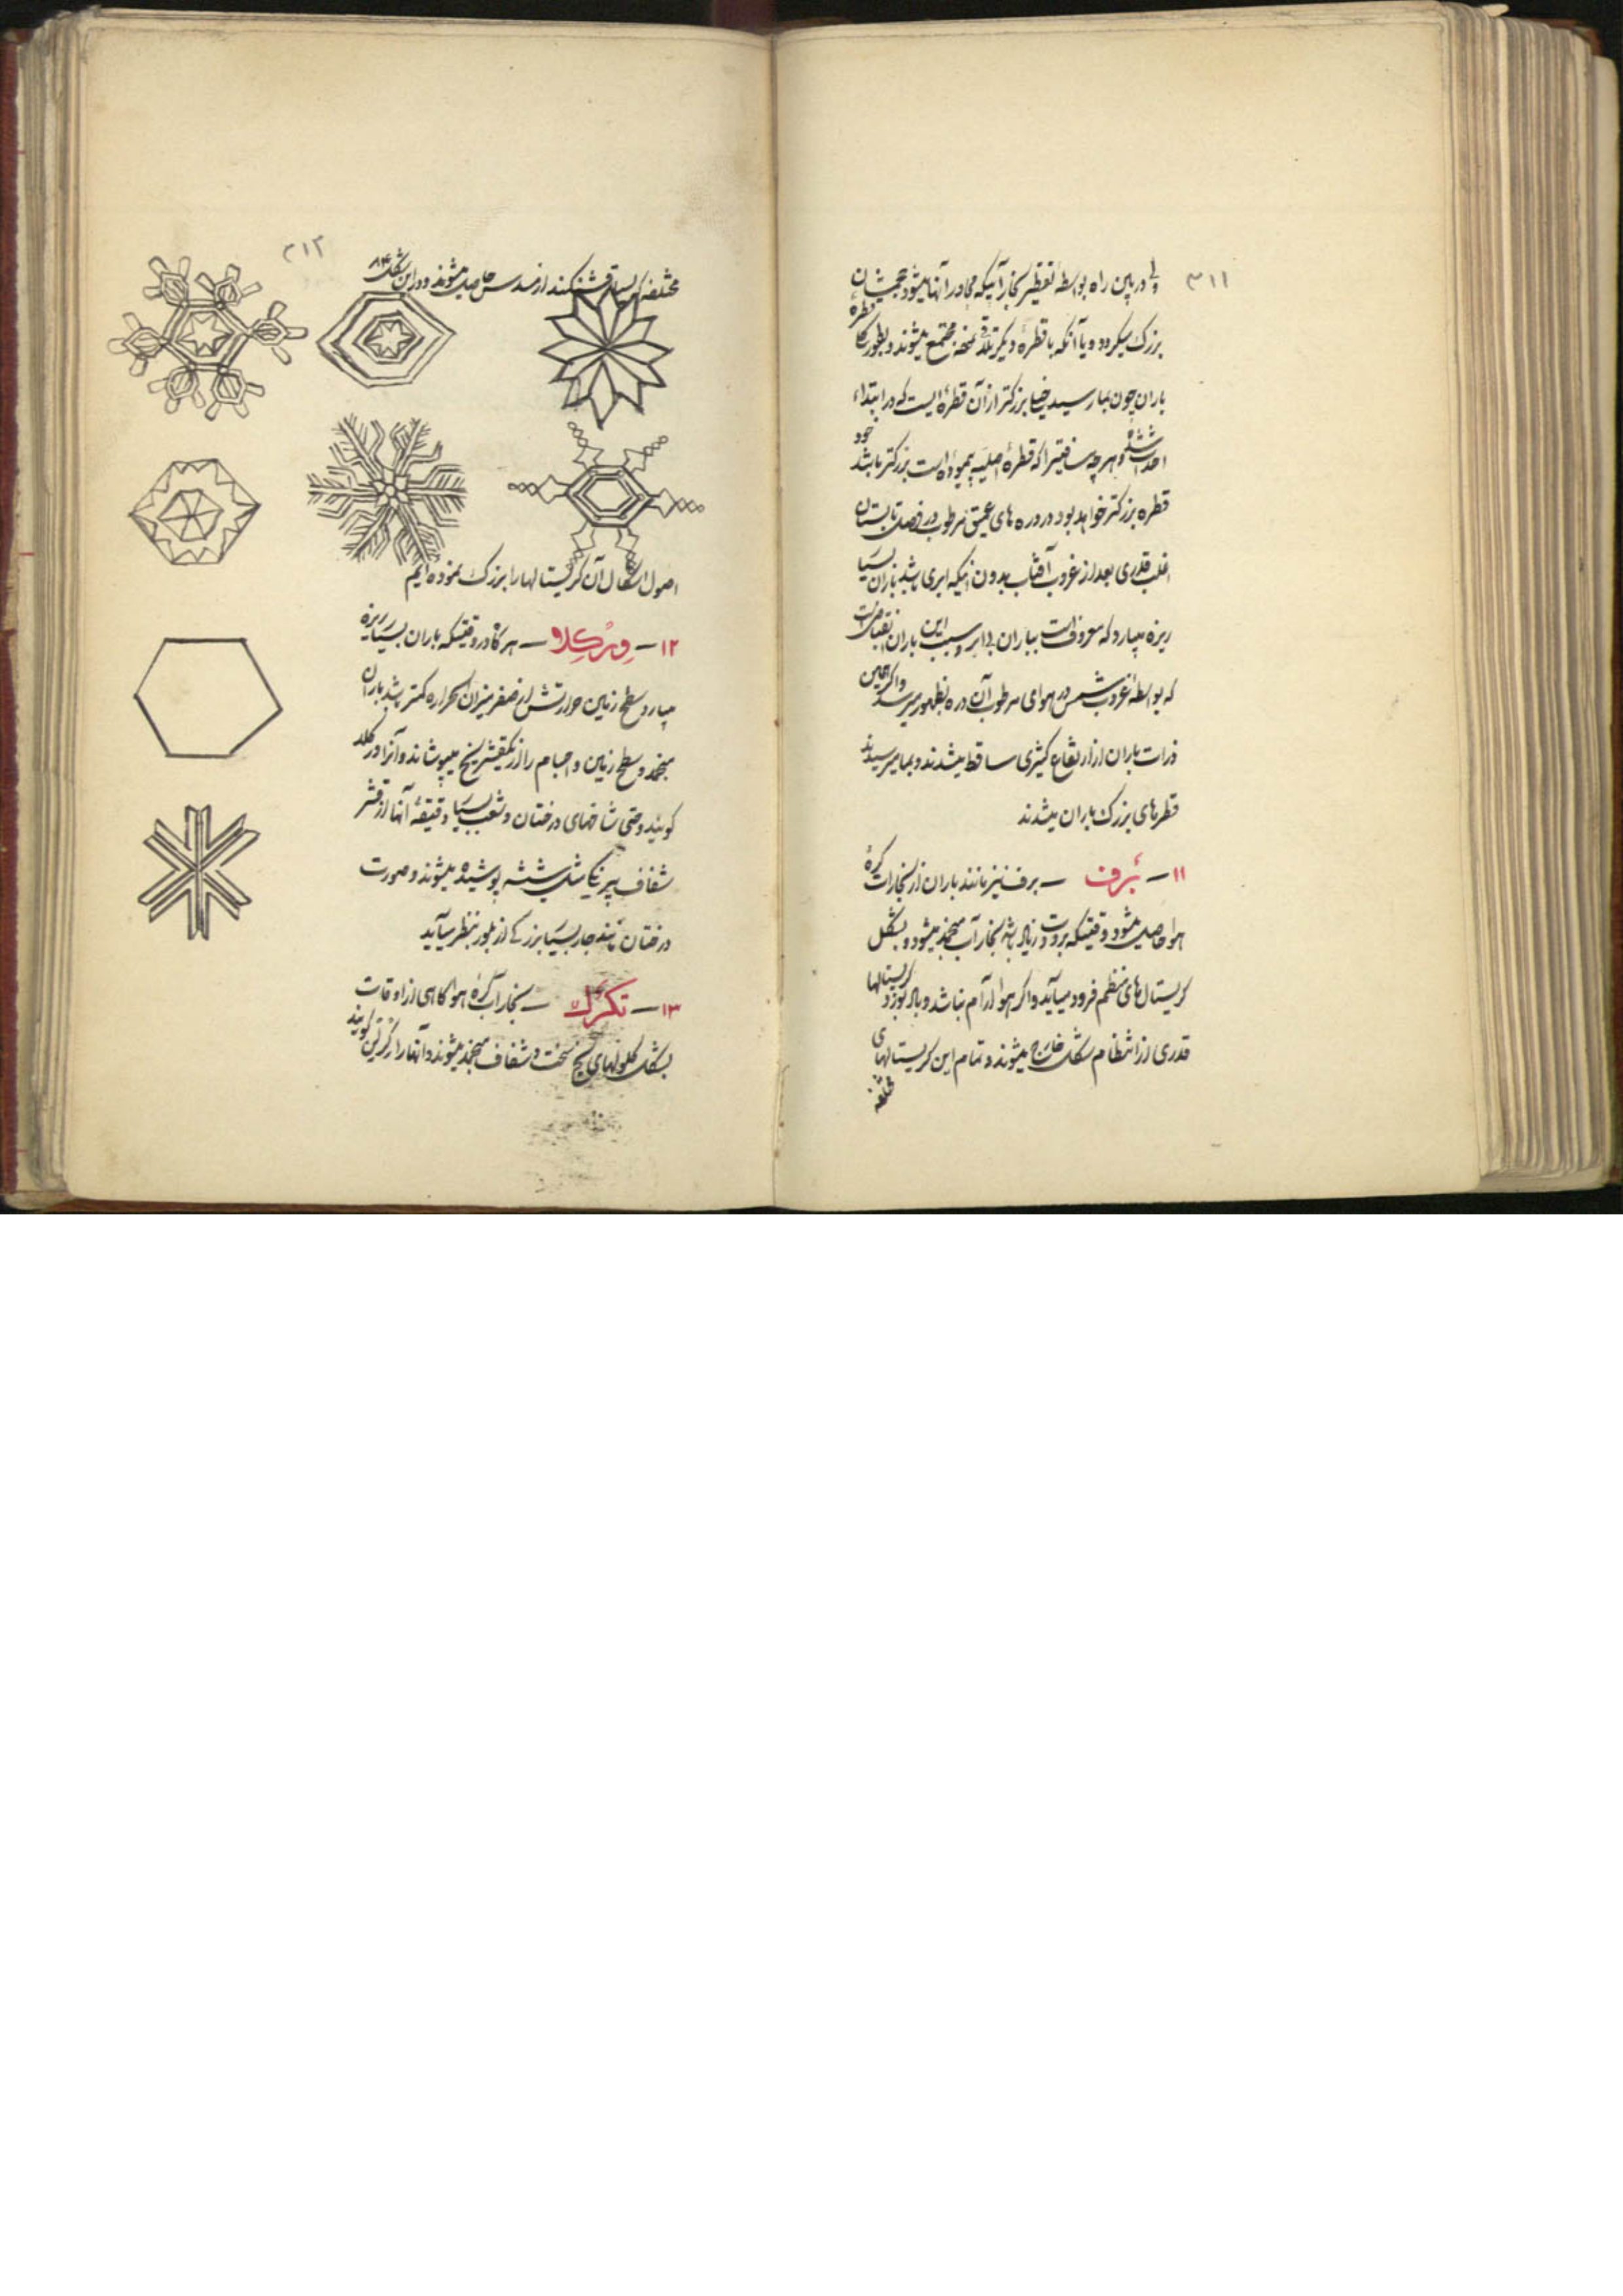 ۳۱۱
ولی در بین راه بواسطه تقطیر بخار آبیکه مجاور آنها میشود حجمشان
بزرک میکردد و یا آنکه با قطرهٔ دیکر تلاقی نموده مجتمع میشوند و بطور کلی قطرهٔ
باران چون بما رسید خیلی بزرکتر از آن قطرهٔ ایست که در ابتداء
احداث شده و هرچه مسافتیرا که قطرهٔ اصلیه پیموده است بزرکتر باشد خود
قطره بزرکتر خواهد بود در دره های عمیق مرطوب در فصل تابستان
اغلب قدری بعد از غروب آفتاب بدون اینکه ابری باشد باران بسیار
ریزه میبارد که معروفست بباران بی ابر و سبب این باران انقباضیست
که بواسطهٔ غروب شمس در هوای مرطوب آن دره بظهور میرسد و اکر همین
ذرات باران از ارتفاع کثیری ساقط میشدند و بما میرسیدند
قطرهای بزرک باران میشدند
۱۱ — برف — برف نیز مانند باران از بخارات کرهٔ
هوا حاصل میشود وقتیکه برودت زیاد باشد بخار آب منجمد میشود و بشکل
کریستال های منظم فرود میآید و اکر هوا آرام نباشد و باد بوزد کریستالها
قدری از انتظام شکل خارج میشوند و تمام این کریستالهای
مختلفه
۳۱۲
مختلفه که بسیار قشنکند از مسدس حاصل میشوند و در این شکل ۸۴
اصول اشکال آن کریستالها را بزرک نموده ایم
۱۲ — ورکلا — هرکاه در وقتیکه باران بسیار ریزه
میبارد سطح زمین حرارتش از صفر میزان الحراره کمتر باشد باران
منجمد و سطح زمین و اجسام را از یکقشر یخ میپوشاند و آنرا ورکلا
کویند و حتی شاخهای درختان و شعب بسیار دقیقهٔ آنها از قشر
شفاف پیرنکی مثل شیشه پوشیده میشوند و صورت
درختان مانند جار بسیار بزرکی از بلور بنظر میآید
۱۳ — تکرک — بخار آب کرهٔ هوا کاهی از اوقات
بشکل کلولهای یخ سخت و شفاف منجمد میشوند و آنها را کویند